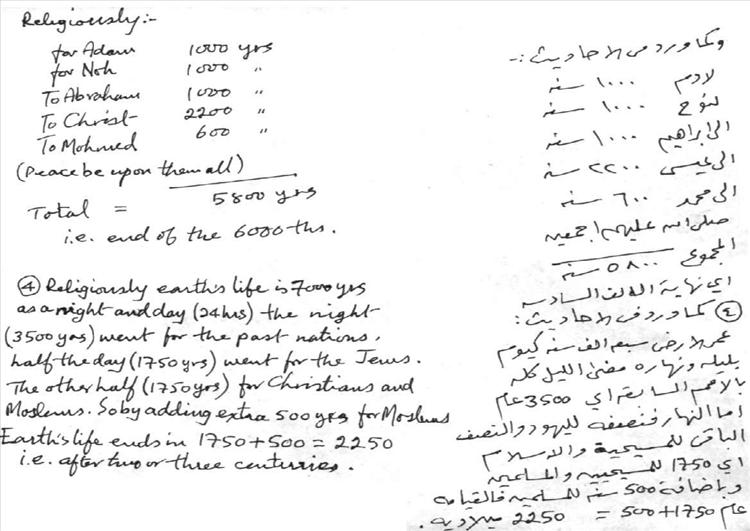 Religiously:-
for Adam 1000 yrs
for Noh 1000 "
To Abraham 1000 "
To Christ 2200 "
To Mohmed 600 "
(Peace be upon them all)
Total = 5800 yrs
i.e. end of the 6000 ths.
④ Religiously earth's life is 7000 yrs
as a night and day (24hrs) the night
(3500 yrs) went for the past nations,
half the day (1750 yrs) went for the Jews.
The other half (1750 yrs) for Christians and
Moslems. So by adding extra 500 yrs for Moslems
Earth's life ends in 1750 + 500 = 2250
i.e. after two or three centuries.
وكما ورد في الاحاديث :-
لادم ١٠٠٠ سنه
لنوح ١٠٠٠ سنه
الى ابراهيم ١٠٠٠ سنه
الى عيسى ٢٢٠٠ سنه
الى محمد ٦٠٠ سنه
صلى الله عليهم اجمعين
المجموع ٥٨٠٠ سنه
اي نهاية الالف السادسه
④ كما ورد في الاحاديث :
عمر الارض سبعة الف سنه كيوم
بليله ونهاره مضى الليل كله
بالامم السابقة اي 3500 عام
اما النهار فنصفه لليهود والنصف
الباقي للمسيحية والاسلام
اي 1750 للمسيحيين والمسلمين
وباضافة 500 سنه للمسلمين فالقيامه
عام 1750+500 = 2250 ميلاديه.